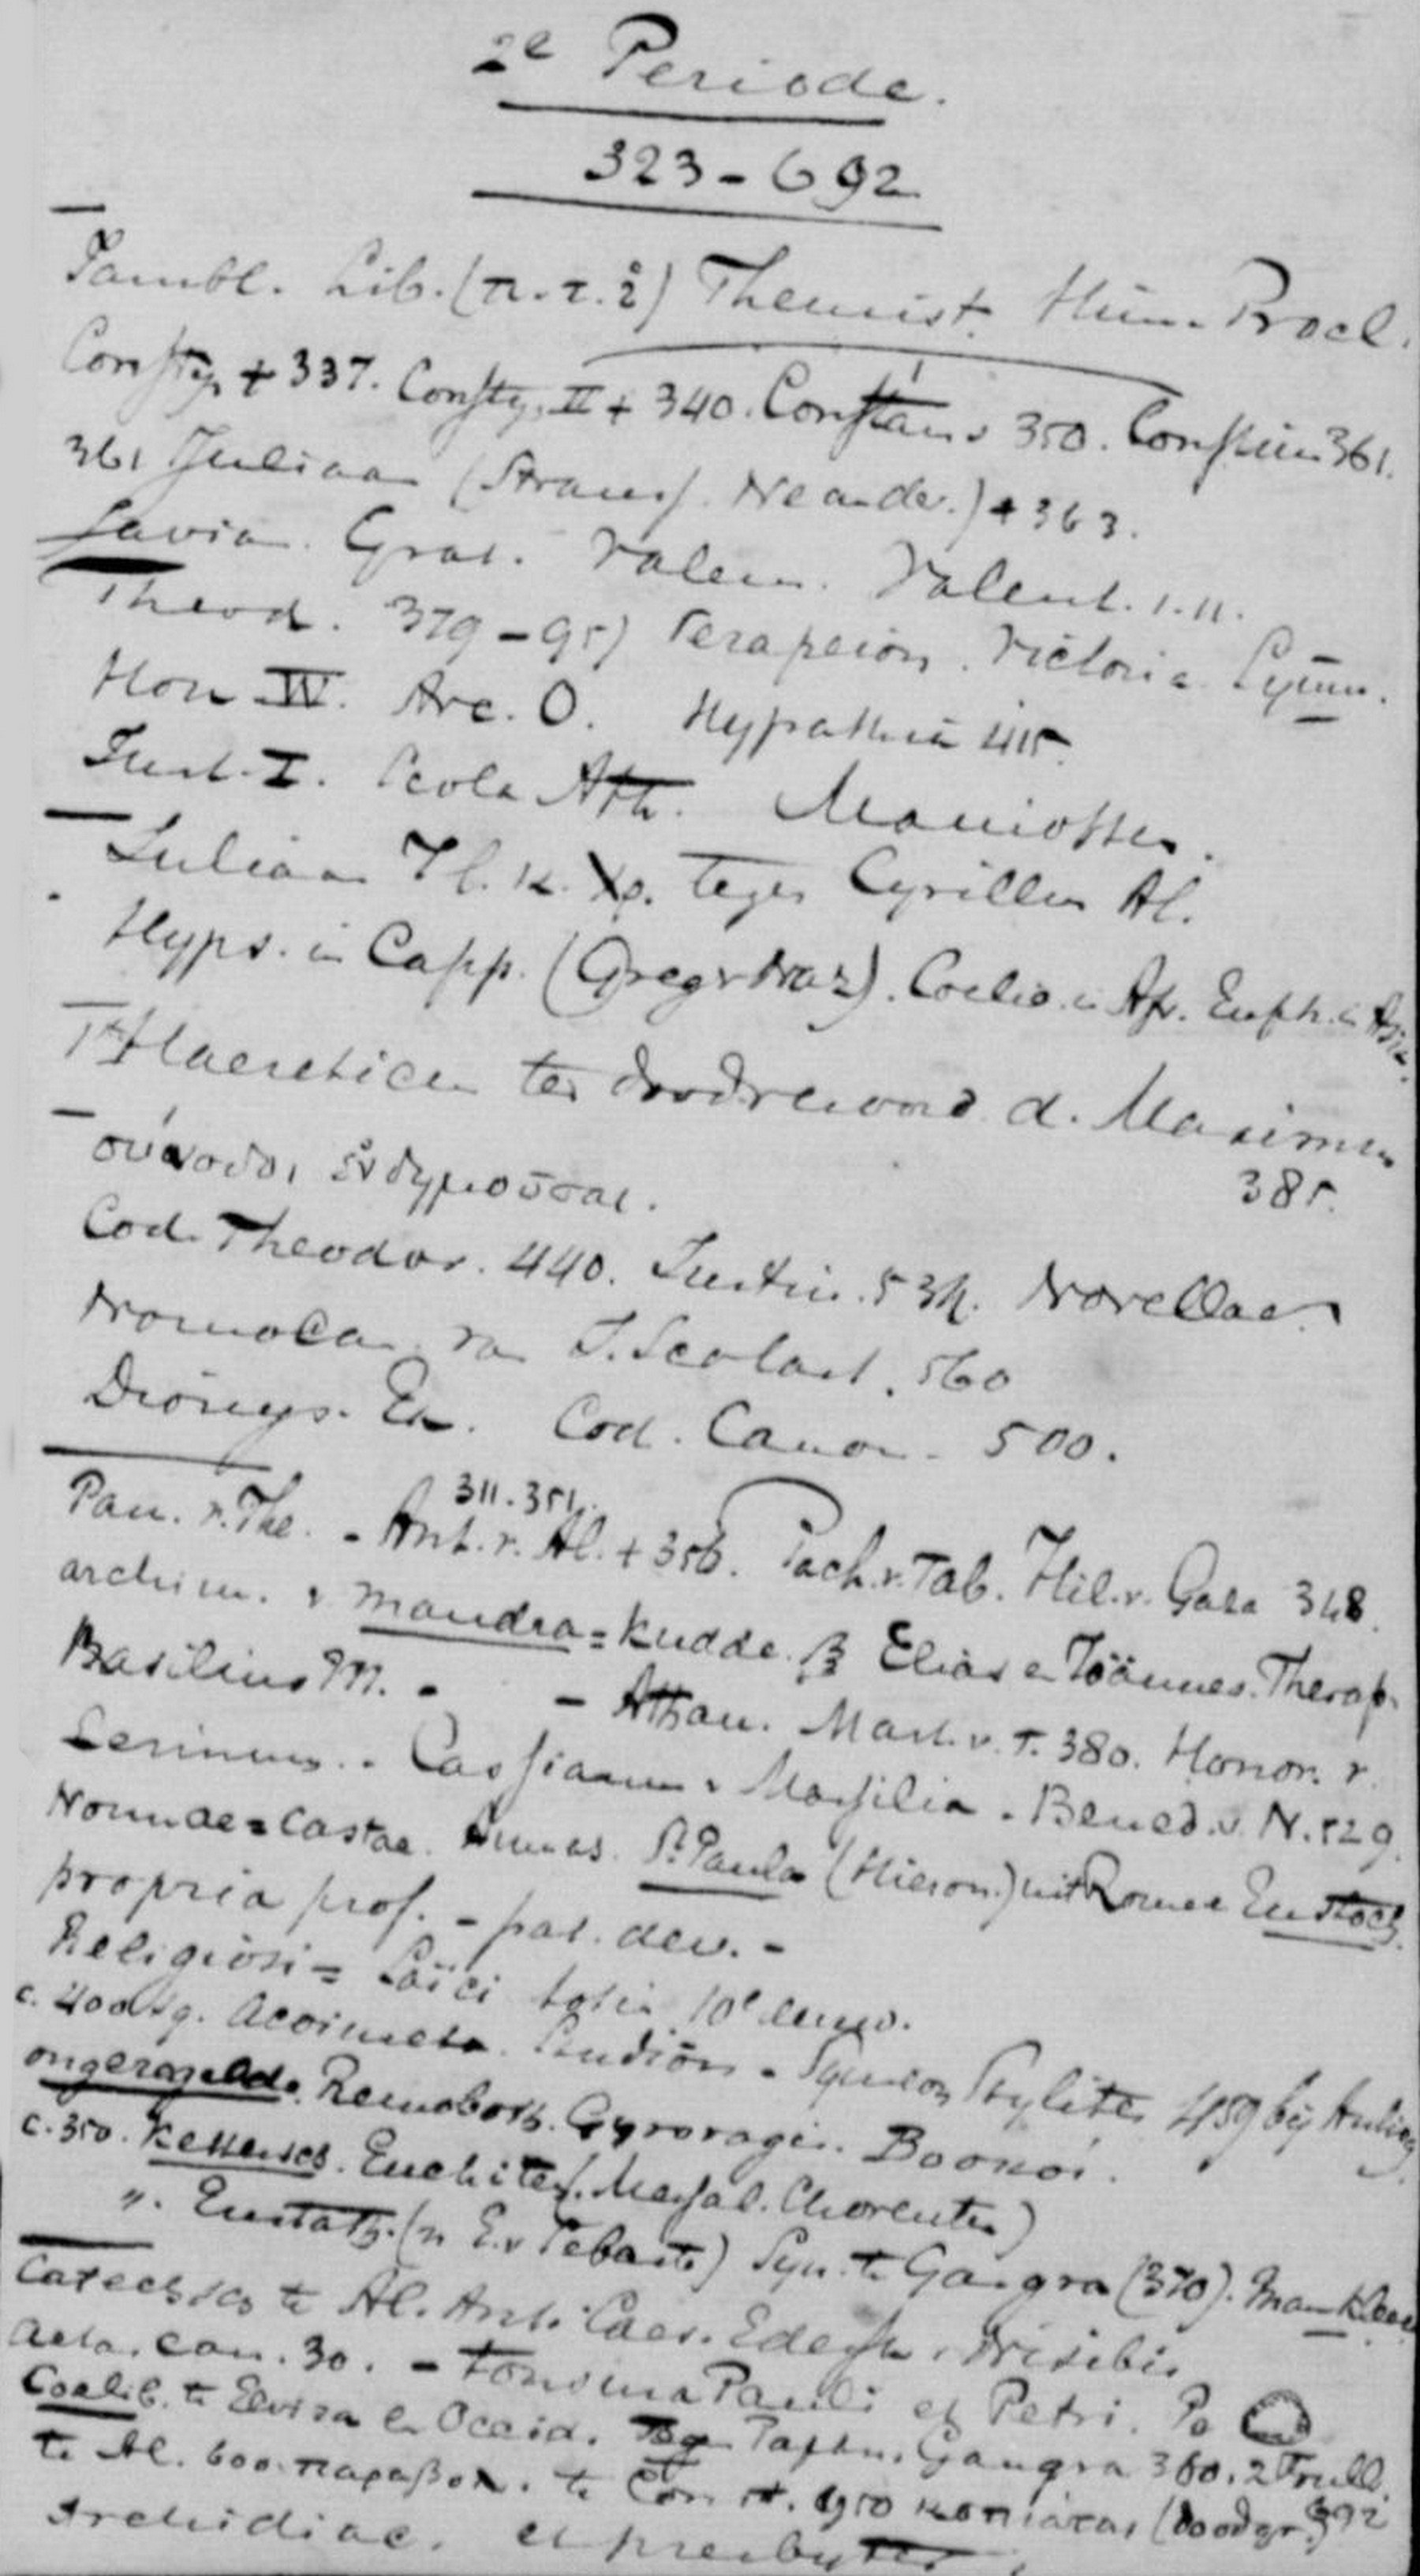 2e Periode.
323-692
Jambl. Lib. (π.τ.ἱ) Themist. Him. Procl.
Constt. + 337. Constt. II + 340. Constans 350. Constin 361.
361 Juliaan (Strauss. Neander.) + 363.
Jovian. Grat. Valens. Valent. I. II.
Theod. 379-95) Serapeion. Victoria. Symm.
Hon W. Arc. O. Hypathia 415.
Just. I. Scola Ath. Maniotten.
Juliaan κ. Χρ. tegen Cyrillus Al.
Hyps. in Capp. (Greg v Naz). Coelic. in Afr. Euph. in Asia.
1e Haeretici ter dood d. Maximus
385.
σύνοδοι ἐνδημοῦσαι.
Cod. Theodos. 440. Justin. 534. Novellae.
Nomocan. van J. Scolast. 560
Dionys. Ex. Cod. Canon. 500.
311. 351.
Pau. v. The. - Ant. v. Al. + 356. Pach. v. Tab. Hil. v. Gaza 348.
archim. v mandra = kudde. Elias en Joännes. Therap.
Basilius M. - - Athan. Mart. v. T. 380. Honor. v.
Lerinum. - Cassianus v Massilia. Bened. v. N. 529.
Nonnae = Castae. Ammas. St. Paula (Hieron.) uit Rome en Eustoch.
propria prof. - pat. dev. -
Religiosi = Laïci tot in 10e eeuw.
c. 400 Acoimeta. Studion - Symeon Stylites 459 bij Antioch.
ongeregelde. Remoboth. Gyrovagi. Βοσκοί.
c. 350. Kettersch. Euchiten (Messal. Choreuten)
". Eustath. (v E. v Sebaste) Syn. te Gangra (370).
Catech. te Al. Ant. Caes. Edessa, Nisibis
aeta. can. 30. - Tonsura Pauli et Petri.
Coelib. te Elvira in Occid. Paphn. Gangra 360. 2 Trull.
te Al. 600 παραβολ. te Const. 950 κοπιάται (doodgr.) 692
Archidiac. et presbyter.